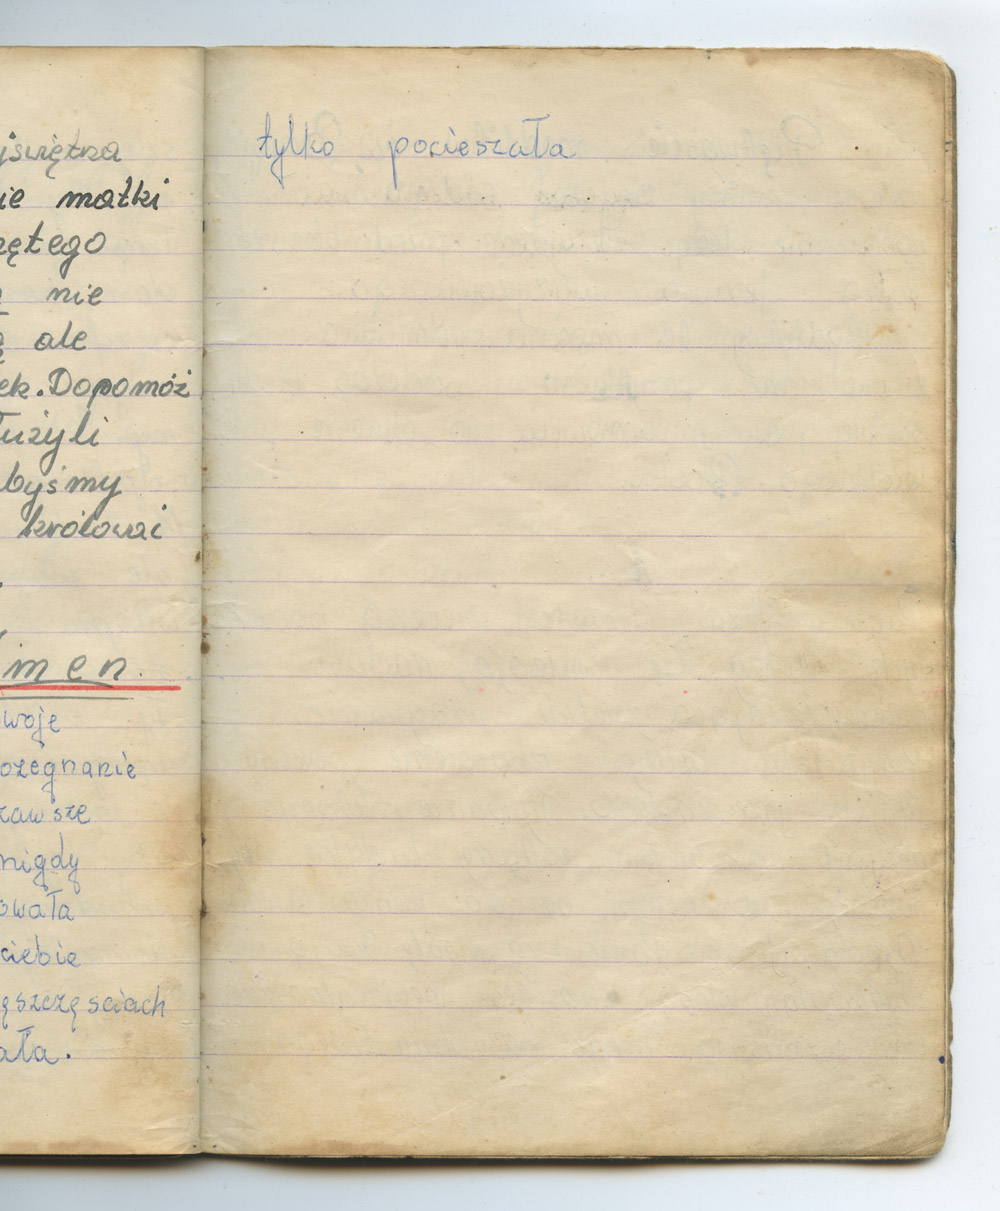 jświętza
ie matki
zętego
nie
ale
ek. Dopomóż
łużyli
byśmy
królować
men.
woje
ożegnanie
zawsze
nigdy
owała
ciebie
ęszczęsciach
ała.
tylko pocieszała